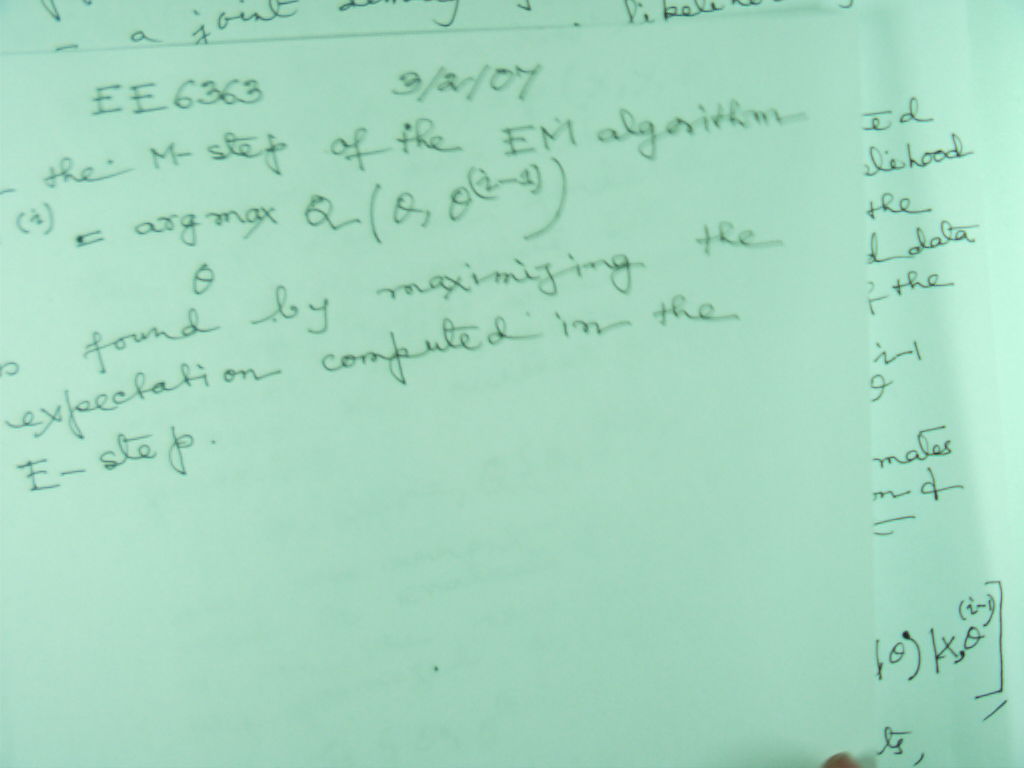 - a joint
EE 6363 3/2/07
- the M-step of the EM algorithm
(i) = argmax Q(θ, θ^(i-1))
θ
found by maximizing the
expectation computed in the
E-step.
the
data
the
i-1
θ
mates
, θ) | X, θ^(i-1)]
ts,